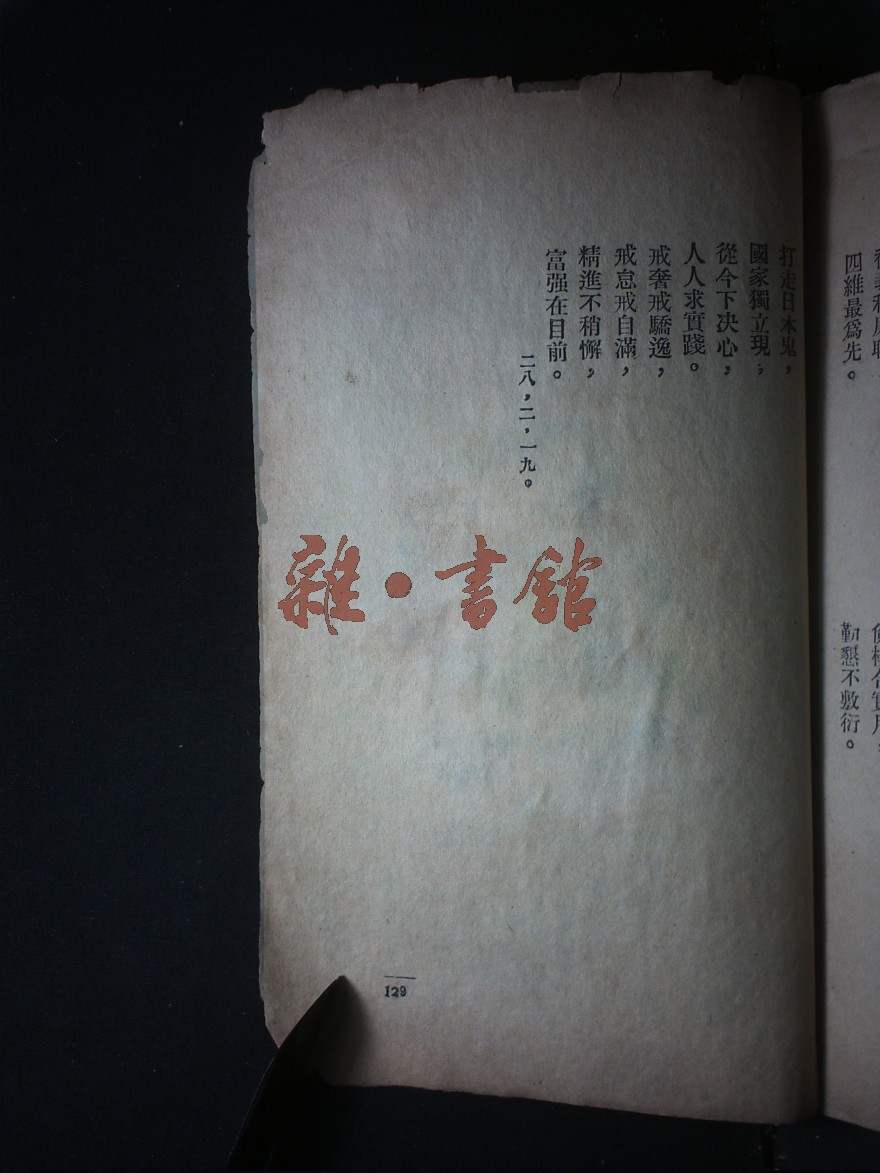 四維最爲先。
勤懇不敷衍。
打走日本鬼，
國家獨立現；
從今下决心，
人人求實踐。
戒奢戒驕逸，
戒怠戒自滿，
精進不稍懈，
富强在目前。
二八，二，一九。
雜·書館
129